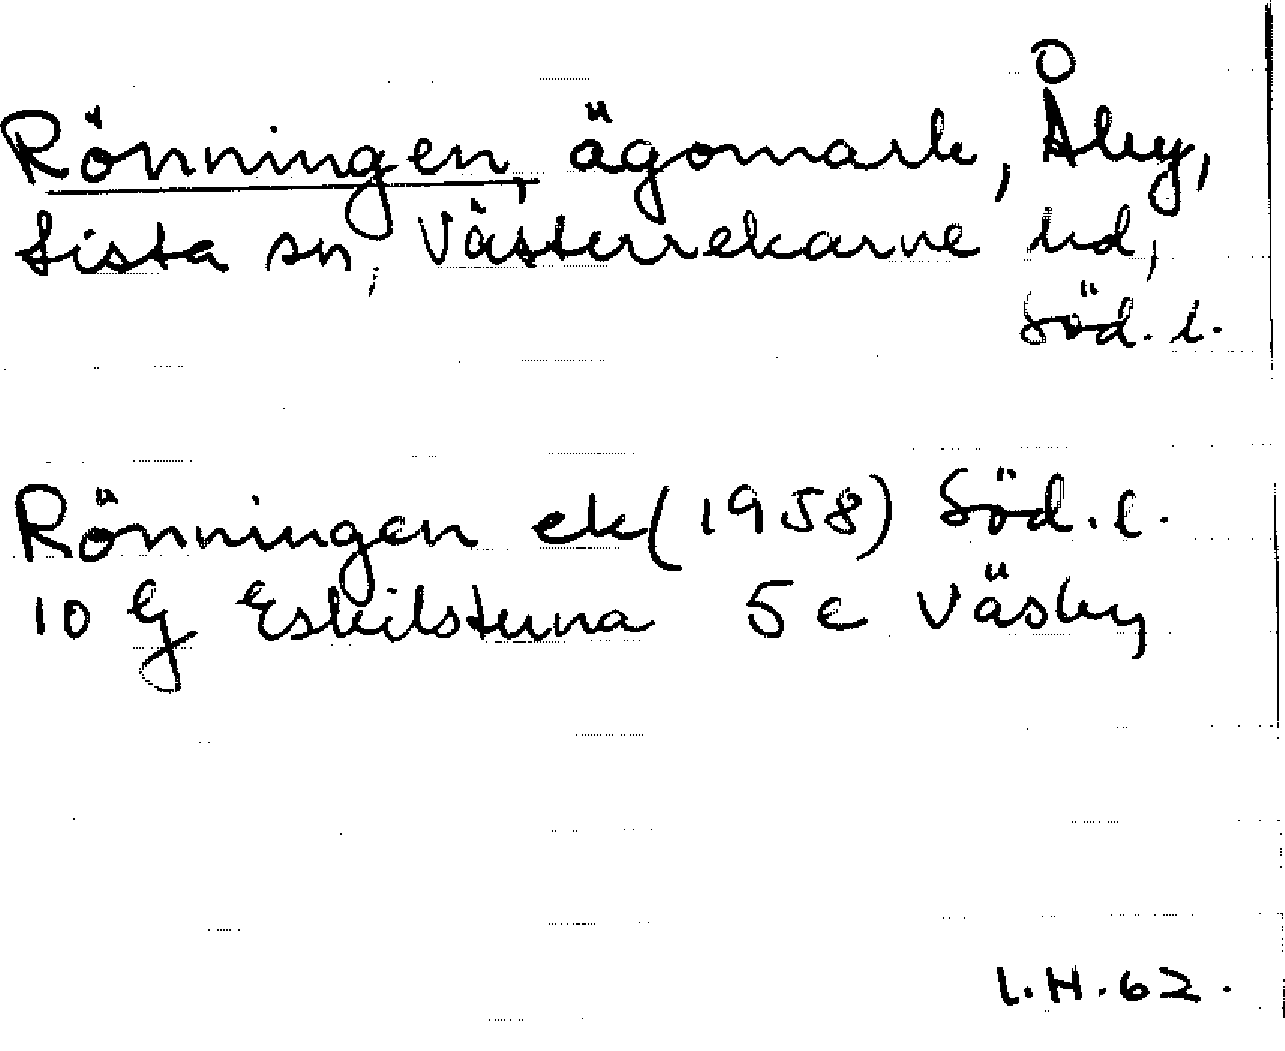 Rönningen, ägomark, Åby,
Lista sn, Västerrekarne hd,
Söd. l.
Rönningen ek (1958) Söd. l.
10 G Eskilstuna 5 c Väsby
I.H. 62.